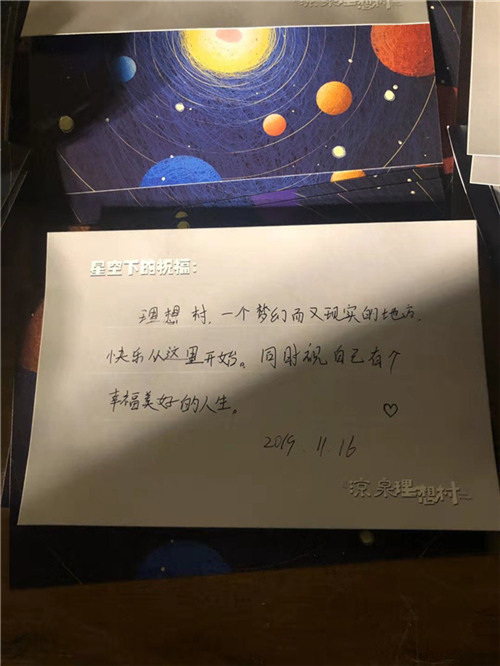 凉泉理想村
星空下的祝福：
理想村，一个梦幻而又现实的地方，
快乐从这里开始。同时祝自己有个
幸福美好的人生。
♡
2019.11.16
凉泉理想村